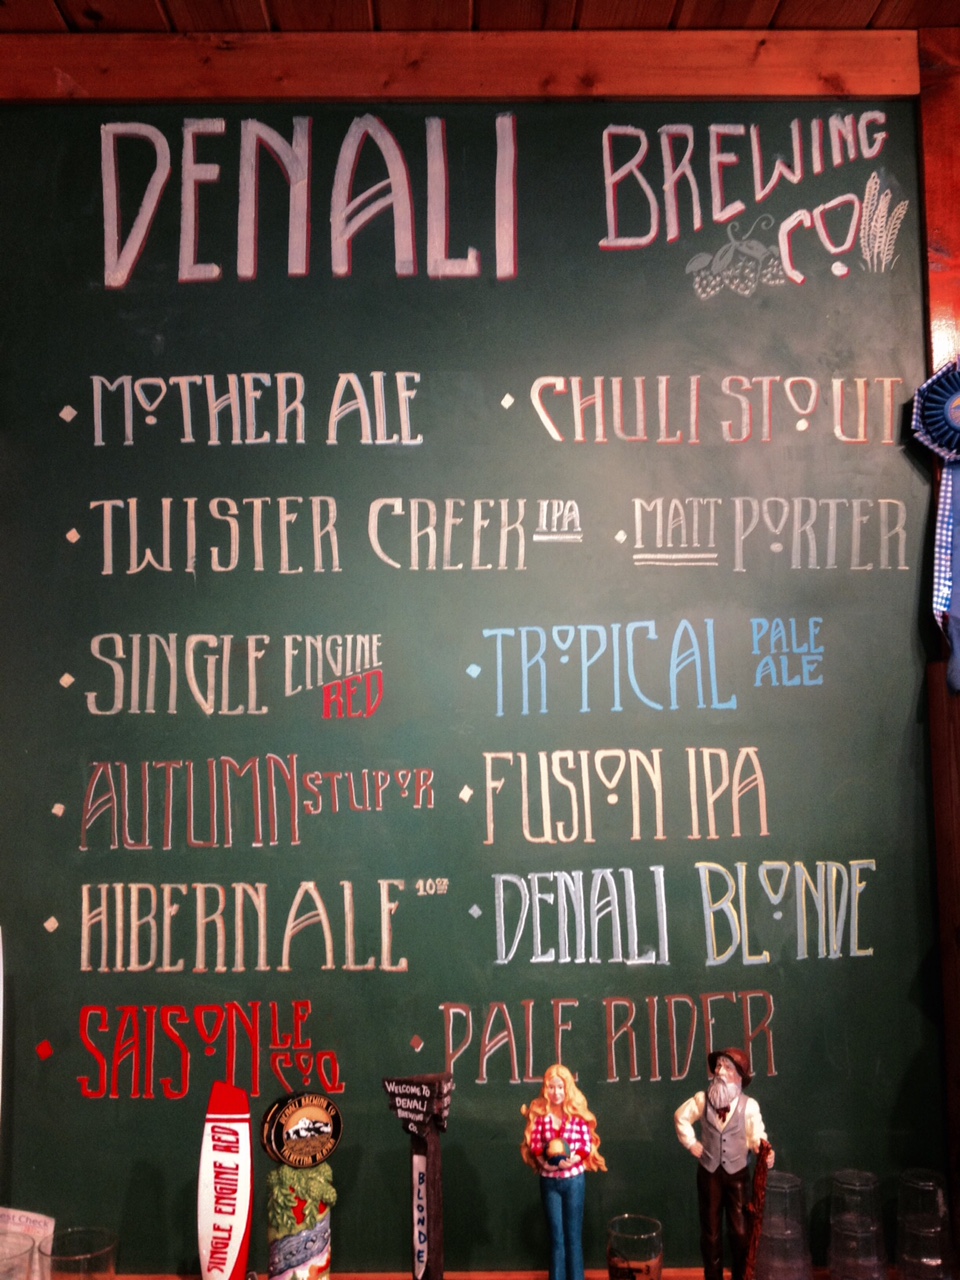 DENALI BREWING CO
MOTHER ALE
CHULI STOUT
TWISTER CREEK IPA
MATT PORTER
SINGLE ENGINE RED
TROPICAL PALE ALE
AUTUMN STUPOR
FUSION IPA
HIBERNALE 10oz
DENALI BLONDE
SAISON LE COQ
PALE RIDER
SINGLE ENGINE RED
DENALI BREWING CO
TALKEETNA ALASKA
WELCOME TO
DENALI
BREWING
CO.
BLONDE
Check